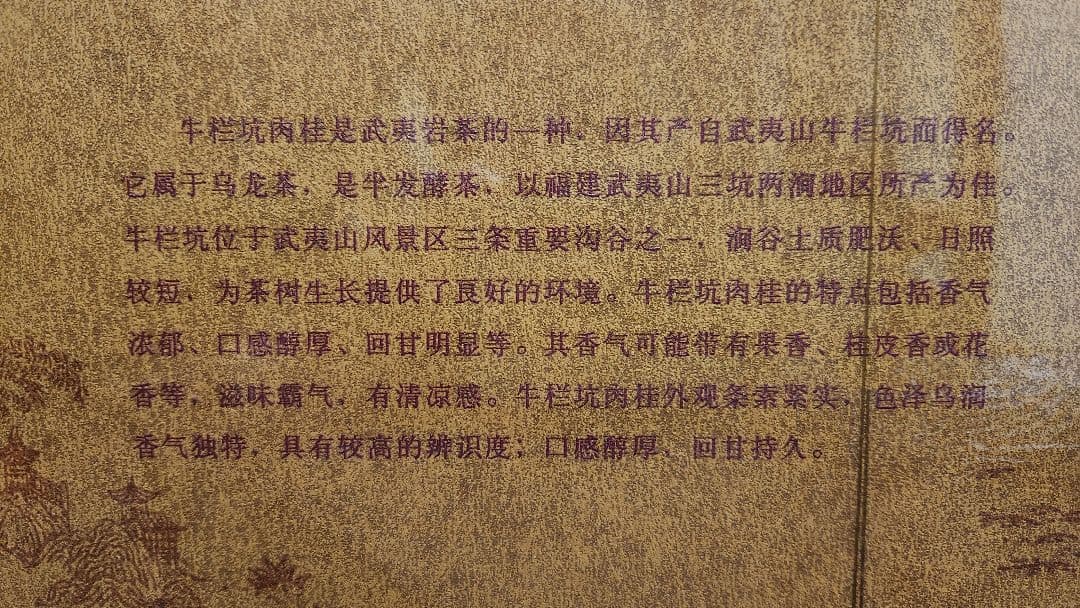 牛栏坑肉桂是武夷岩茶的一种，因其产自武夷山牛栏坑而得名。
它属于乌龙茶，是半发酵茶，以福建武夷山三坑两涧地区所产为佳。
牛栏坑位于武夷山风景区三条重要沟谷之一，涧谷土质肥沃、日照
较短，为茶树生长提供了良好的环境。牛栏坑肉桂的特点包括香气
浓郁、口感醇厚、回甘明显等。其香气可能带有果香、桂皮香或花
香等，滋味霸气，有清凉感。牛栏坑肉桂外观条索紧实，色泽乌润
香气独特，具有较高的辨识度；口感醇厚，回甘持久。